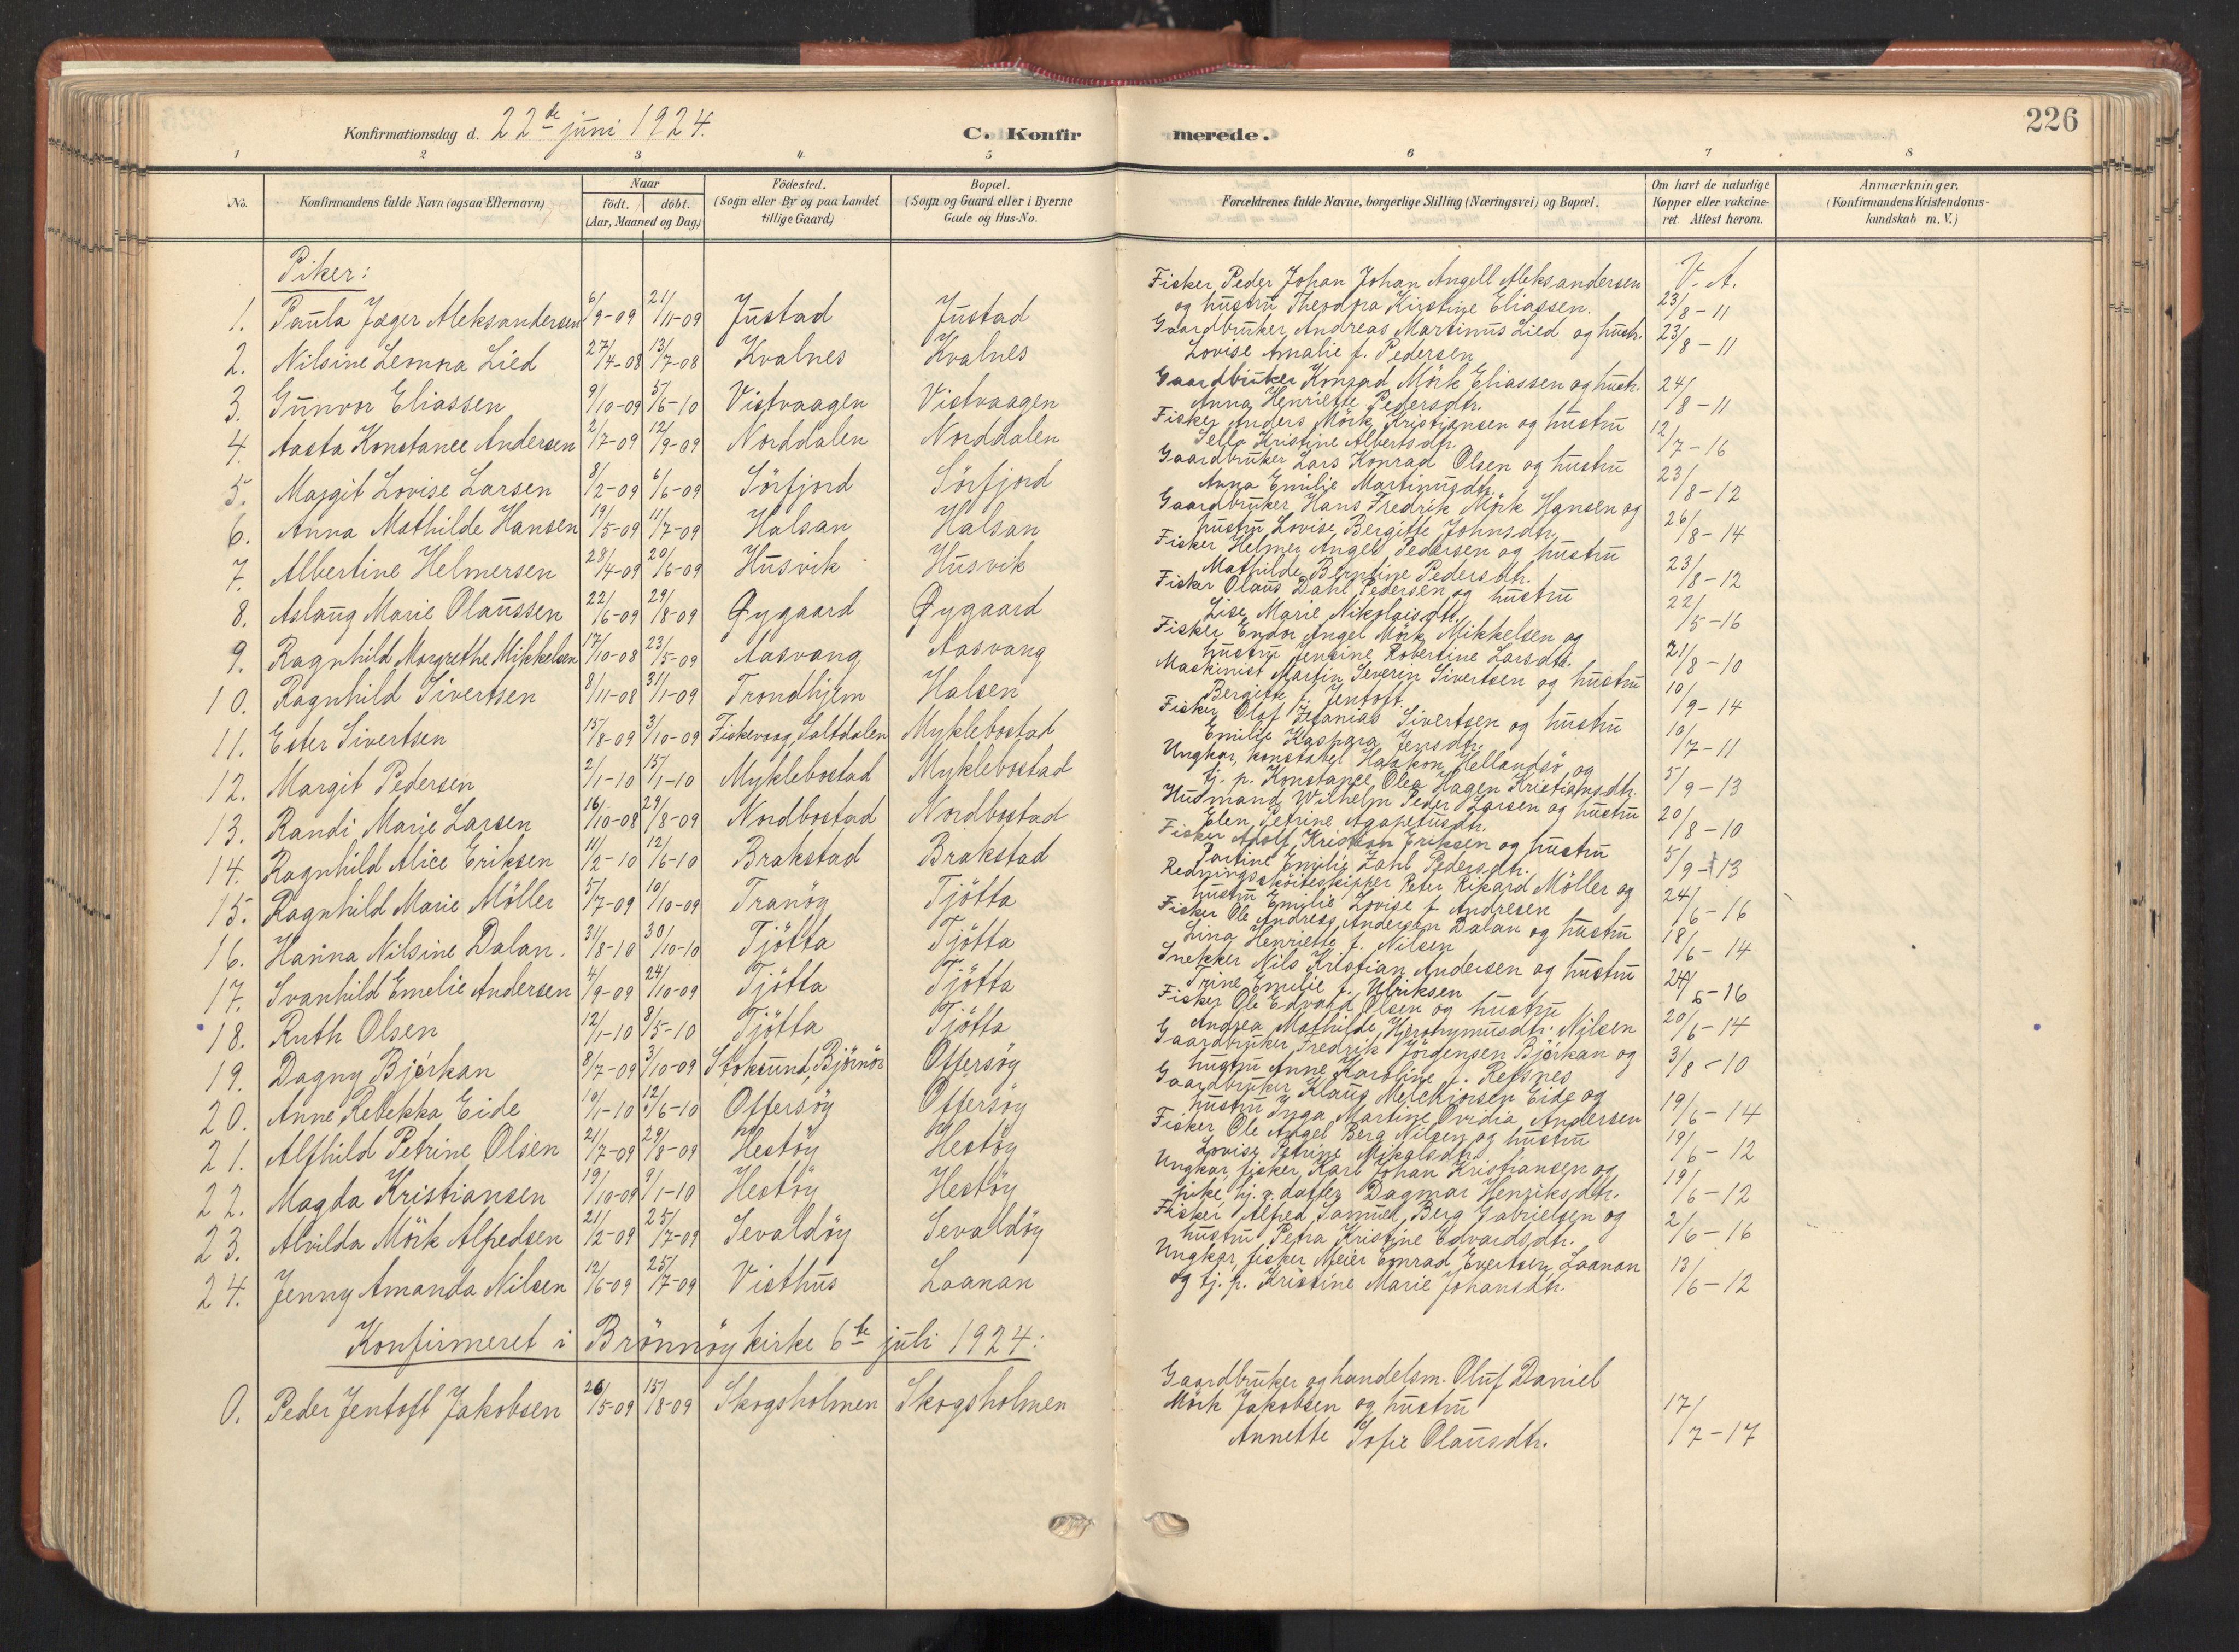 226
Konfirmationsdag d. 22de juni 1924.
C. Konfirmerede.
1 2 3 4 5 6 7 8
No.
Konfirmandens fulde Navn (ogsaa Efternavn)
Naar
födt. döbt.
(Aar, Maaned og Dag)
Födested.
(Sogn eller By og paa Landet
tillige Gaard)
Bopæl.
(Sogn og Gaard eller i Byerne
Gade og Hus-No.
Forældrenes fulde Navne, borgerlige Stilling (Næringsvei) og Bopæl.
Om havt de naturlige
Kopper eller vakcine-
ret. Attest herom.
Anmærkninger.
(Konfirmandens Kristendoms-
kundskab m. V.)
Piker:
V. A.
1. Paula Jæger Aleksandersen 6/9-09 21/11-09 Justad Justad Fisker Peder Johan Johan Angell Aleksandersen
og hustru Theodora Kirstine Eliassen. 23/8-11
2. Nilsine Leonora Lied 27/4-08 13/7-08 Kvalnes Kvalnes Gaardbruker Andreas Martinus Lied og hustr. 23/8-11
Lovise Amalie f. Pedersen
3. Gunvor Eliassen 9/10-09 5/6-10 Vistvaagen Vistvaagen Gaardbruker Konrad Mörk Eliassen og hustr. 24/8-11
Anna Henriette Pedersdtr.
4. Aasta Konstance Andersen 2/7-09 12/9-09 Norddalen Norddalen Fisker Anders Mörk Kristiansen og hustru 12/7-16
Kristine Albertsdtr.
5. Margit Lovise Larsen 8/2-09 6/6-09 Sörfjord Sörfjord Gaardbruker Lars Konrad Olsen og hustru 23/8-12
Anna Emilie Martinusdtr.
6. Anna Mathilde Hansen 19/5-09 11/7-09 Halsan Halsan Gaardbruker Hans Fredrik Mörk Hansen og 26/8-14
hustru Lovise Bergitte Johnsdtr.
7. Albertine Helmersen 28/4-09 20/6-09 Husvik Husvik Fisker Helmer Angel Pedersen og hustru 23/8-12
Mathilde Berntine Pedersdtr.
8. Aslaug Marie Olaussen 22/6-09 29/8-09 Øygaard Øygaard Fisker Olaus Dahl Pedersen og hustru 22/5-16
Lise Marie Nikolaisdtr.
9. Ragnhild Margrethe Mikkelsen 17/10-08 23/5-09 Aasvang Aasvang Fisker Endor Angel Mörk Mikkelsen og 21/8-10
hustru Jensine Robertine Larsdtr.
10. Ragnhild Sivertsen 8/11-08 31/1-09 Trondhjem Halsen Maskinist Martin Severin Sivertsen og hustru 10/9-14
Bergitte f. Jentoft.
11. Ester Sivertsen 15/8-09 3/10-09 Fiskevaag, Saltdalen Myklebostad Fisker Olaf Zefanias Sivertsen og hustru 10/7-11
Emilie Kaspara Jensdtr.
12. Margit Pedersen 2/1-10 15/1-10 Myklebostad Myklebostad Ungkar, konstabel Haakon Hellandsö og 5/9-13
tj. p. Konstance Olea Hagen Kristiansdtr.
13. Randi Marie Larsen 16/10-08 29/8-09 Nordbostad Nordbostad Husmand Wilhelm Peder Larsen og hustru 20/8-10
Elen Petrine Agapetusdtr.
14. Ragnhild Alice Eriksen 11/2-10 12/6-10 Brakstad Brakstad Fisker Adolf Kristian Eriksen og hustru 5/9-13
Emilie Zahl Pedersdtr.
15. Ragnhild Marie Möller 5/7-09 10/10-09 Tranöy Tjötta Redningsskøiteskipper Peter Rikard Möller og 24/6-16
hustru Emilie Lovise f. Andresen
16. Hanna Nilsine Dalan. 31/8-10 30/10-10 Tjötta Tjötta Fisker Ole Andreas Andersen Dalan og hustru 18/6-14
Lina Henriette f. Nilsen
17. Svanhild Emelie Andersen 4/9-09 24/10-09 Tjötta Tjötta Snekker Nils Kristian Andersen og hustru 24/6-16
Trine Emilie f. Ulriksen
18. Ruth Olsen 12/1-10 8/5-10 Tjötta Tjötta Fisker Ole Edvard Olsen og hustru 20/6-14
Andrea Mathilde Hjeronymusdtr. Nilsen
19. Dagny Bjørkan 8/7-09 3/10-09 Stoksund, Björnör Offersöy Gaardbruker Fredrik Jörgensen Bjørkan og 3/8-10
hustru Anne Karoline f. Refsnes
20. Anne Rebekka Eide 10/1-10 12/6-10 Offersöy Offersöy Gaardbruker Klaus Melchiorsen Eide og 19/6-14
hustru Inga Martine Ovidia Andersen
21. Alfhild Petrine Olsen 21/7-09 29/8-09 Hestöy Hestöy Fisker Ole Angel Berg Nilsen og hustru 19/6-12
Lovise Petrine Mikalsdtr.
22. Magda Kristiansen 19/10-09 9/1-10 Hestöy Hestöy Ungkar, fisker Karl Johan Kristiansen og 19/6-12
pike, hj. v. datter Dagmar Henriksdtr.
23. Alvilda Mörk Alfredsen 21/2-09 25/7-09 Sevaldöy Sevaldöy Fisker Alfred Samuel Berg Gabrielsen og 2/6-16
hustru Petra Kristine Edvardsdtr.
24. Jenny Amanda Nilsen 12/6-09 25/7-09 Visthus Laanan Ungkar, fisker Meier Conrad Evertsen, Laanan 13/6-12
og tj. p. Kristine Marie Johansdtr.
Konfirmeret i Brönnöy kirke 6te juli 1924:
0. Peder Jentoft Jakobsen 26/5-09 15/8-09 Skogsholmen Skogsholmen Gaardbruker og handelsm. Oluf Daniel
Mörk Jakobsen og hustru 17/7-17
Annette Sofie Olausdtr.